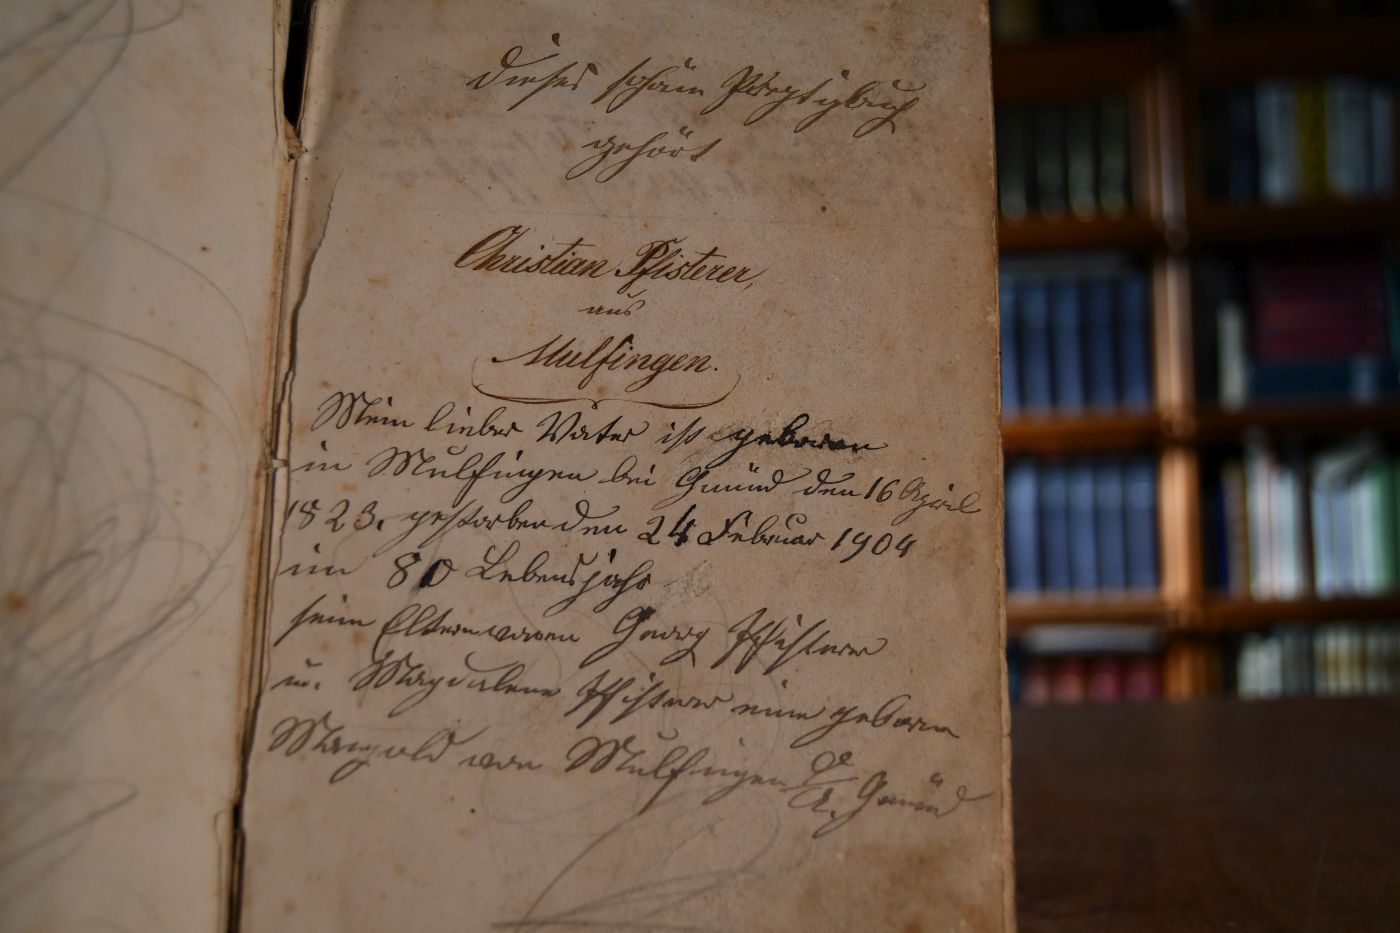 dieses schöne Predigtbuch
gehört
Christian Pfisterer,
aus
Mulfingen.
Mein lieber Vater ist geboren
in Mulfingen bei Gmünd den 16 April
1823. gestorben den 24 Februar 1904
im 80 Lebensjahr
seine Eltern waren Georg Pfisterer
u. Magdalene Pfisterer eine geborne
Mangold von Mulfingen O/A. Gmünd